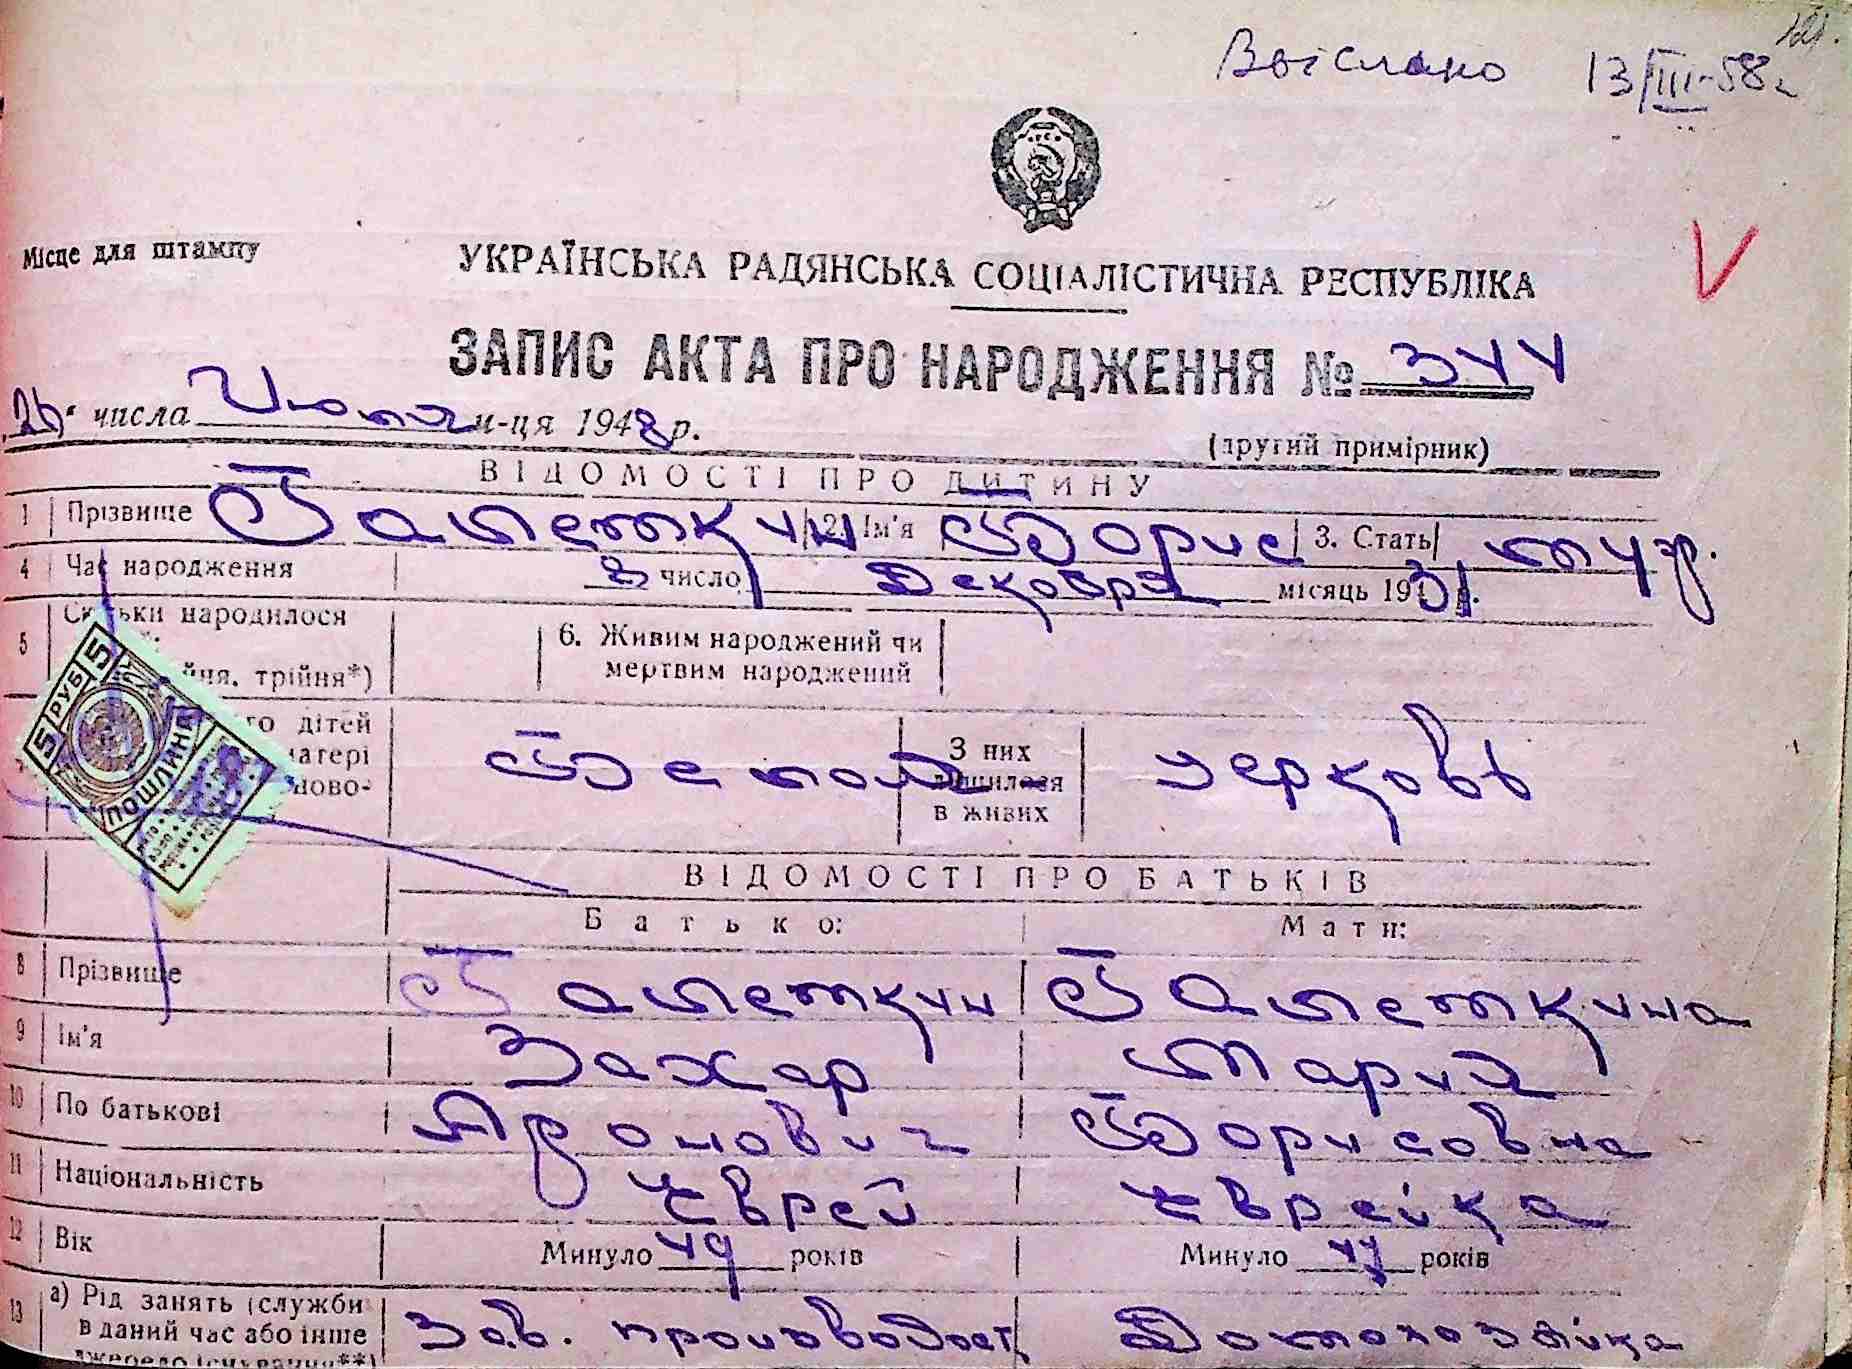 Вислано 13/III-58г
Місце для штампу
УКРАЇНСЬКА РАДЯНСЬКА СОЦІАЛІСТИЧНА РЕСПУБЛІКА
ЗАПИС АКТА ПРО НАРОДЖЕННЯ № 344
26 числа м-ця 1948 р.
(другий примірник)
ВІДОМОСТІ ПРО ДИТИНУ
1 Прізвище Галеткин 2. Ім'я Борис 3. Стать муж.
4 Час народження 8 число Декабря місяць 1931 р.
5 Скільки народилося
6. Живим народжений чи
мертвим народжений
трійня*)
дітей
матері
ново-
З них
лишилося
в живих
5 РУБ 5
ПОШЛИНА
ВІДОМОСТІ ПРО БАТЬКІВ
Батько: Мати:
8 Прізвище Галеткин Галеткина
9 Ім'я Захар Мария
10 По батькові Аронович Борисовна
11 Національність Еврей Еврейка
12 Вік Минуло 49 років Минуло 47 років
13 а) Рід занять (служби Зав. производст Домохозяйка
в даний час або інше
джерело існування**)